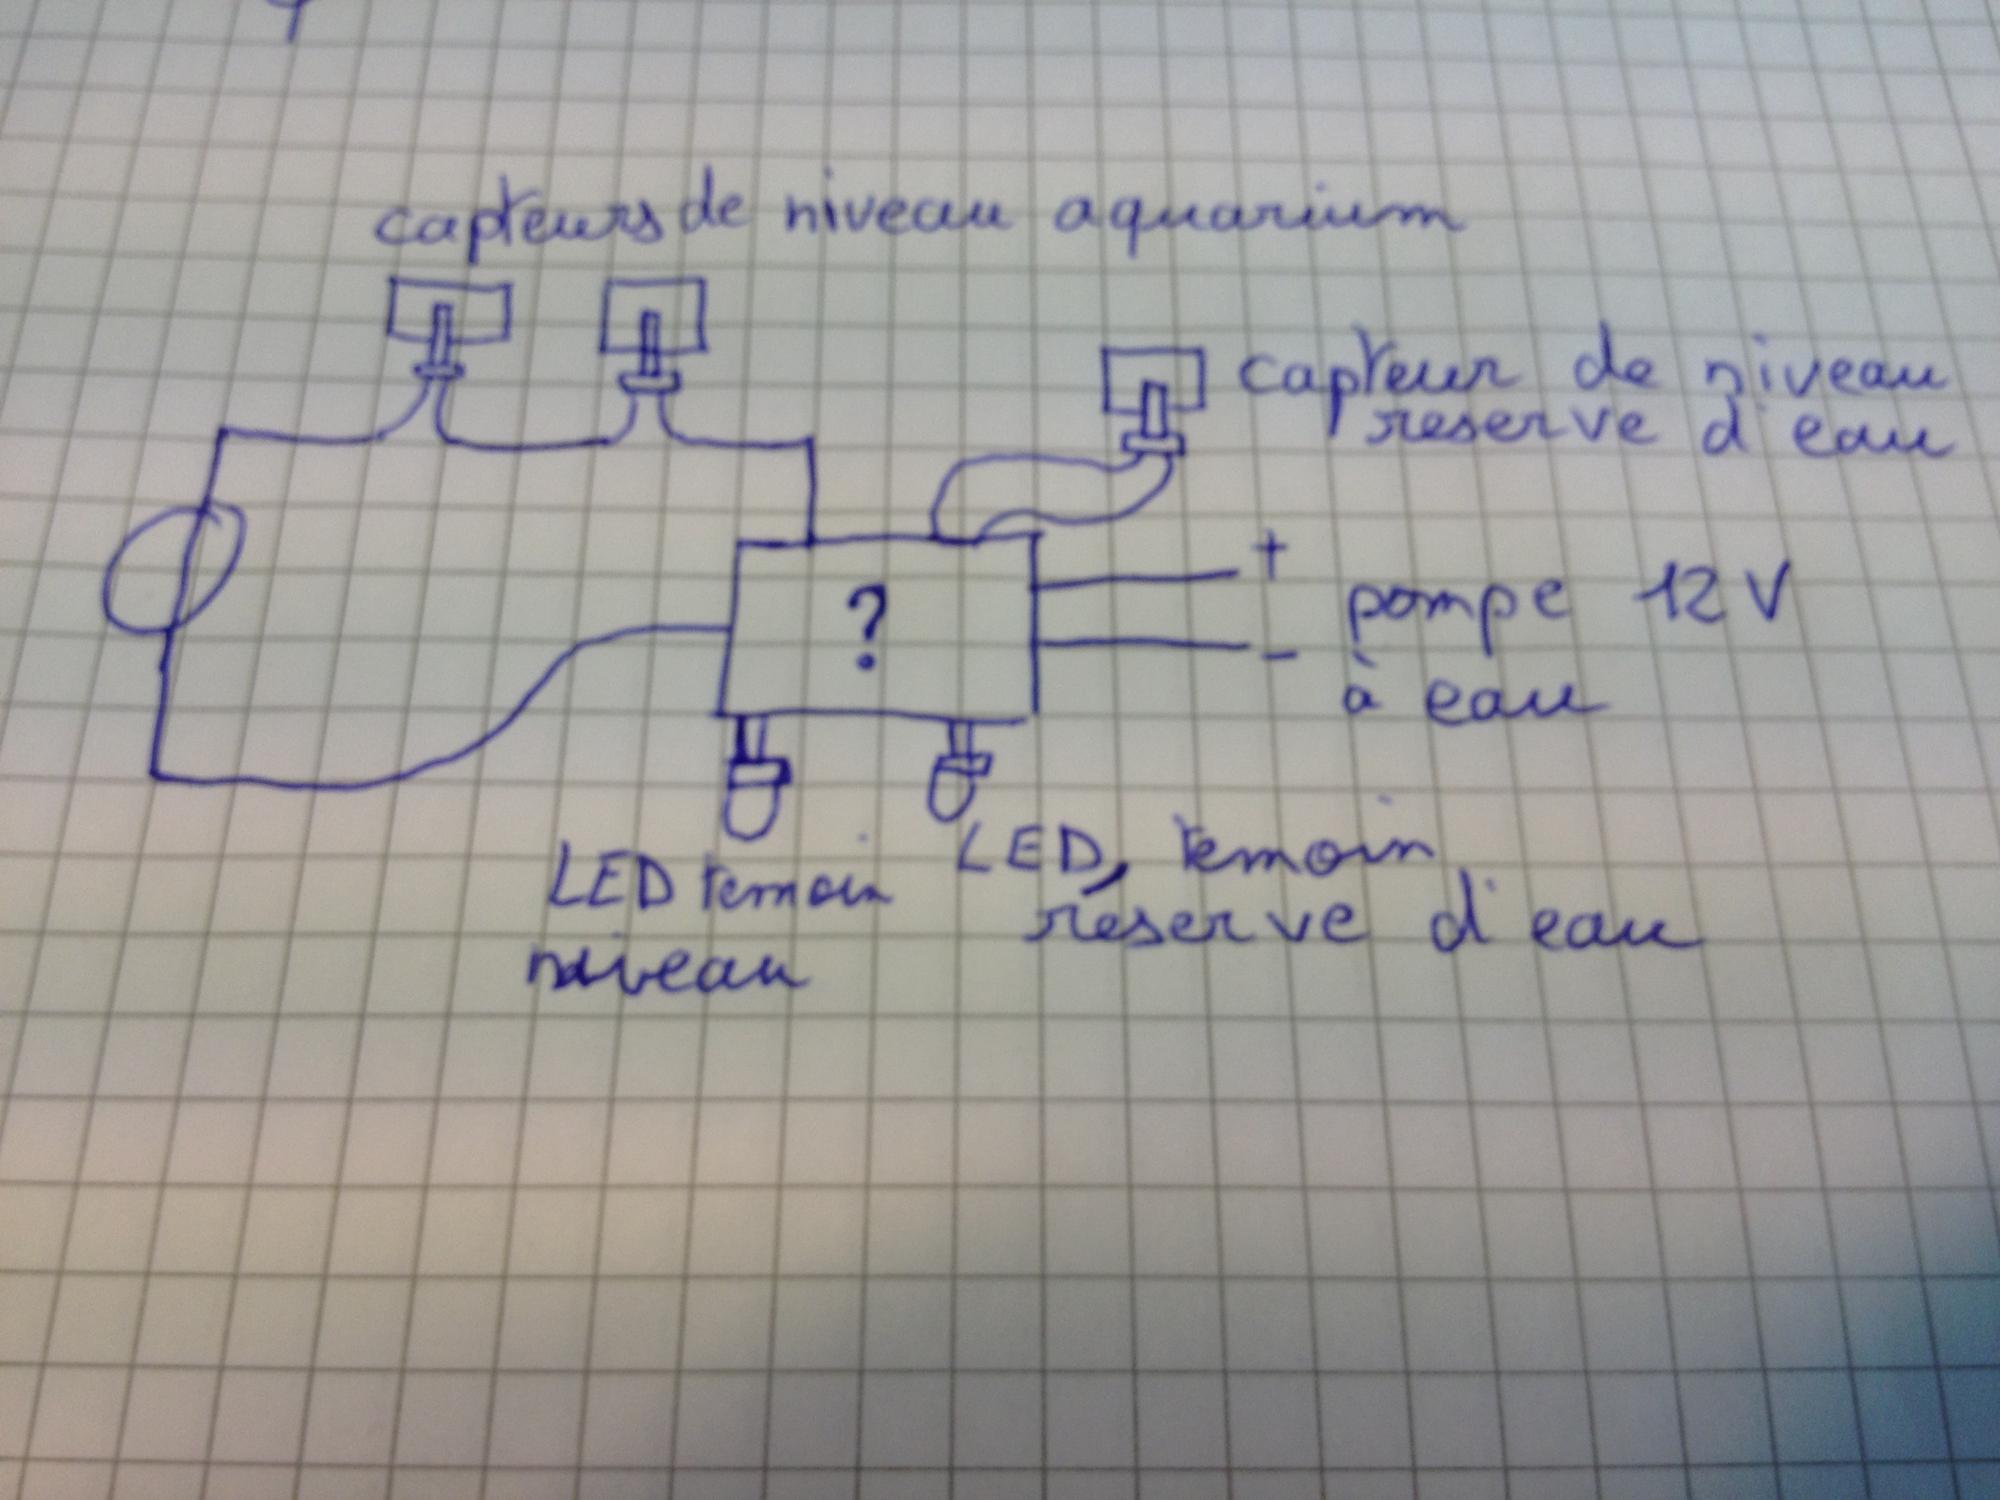 capteurs de niveau aquarium
capteur de niveau
reserve d'eau
+
?
pompe 12V
-
à eau
LED temoin
niveau
LED, temoin
réserve d'eau